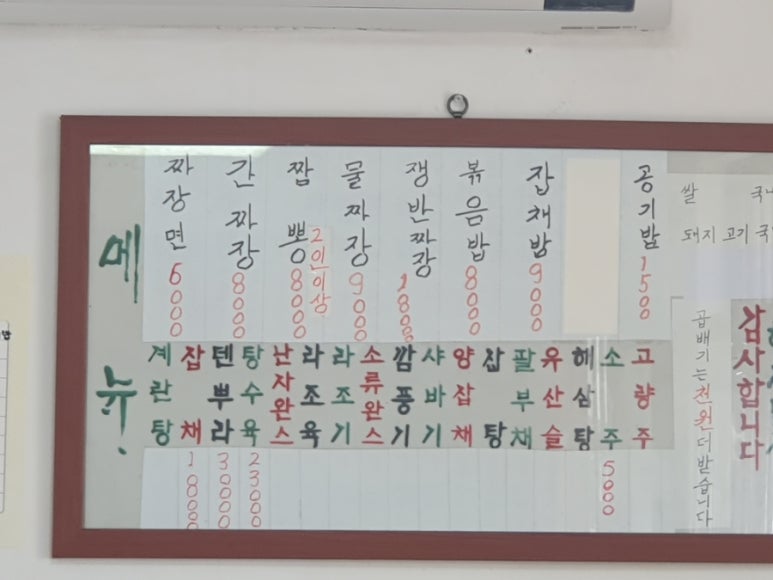 메뉴!
짜장면 6000
간짜장 8000
짬뽕 8000
2인이상
물짜장 9000
쟁반짜장 18000
볶음밥 8000
잡채밥 9000
공기밥 1500
계란탕
잡채 18000
텐뿌라 23000
탕수육 23000
난자완스
라조육
라조기
소류완스
깜풍기
샤바기
양잡채
잡탕
팔부채
유산슬
해삼탕
소주 5000
고량주
쌀
돼지고기
곱배기는천원더받습니다
감사합니다